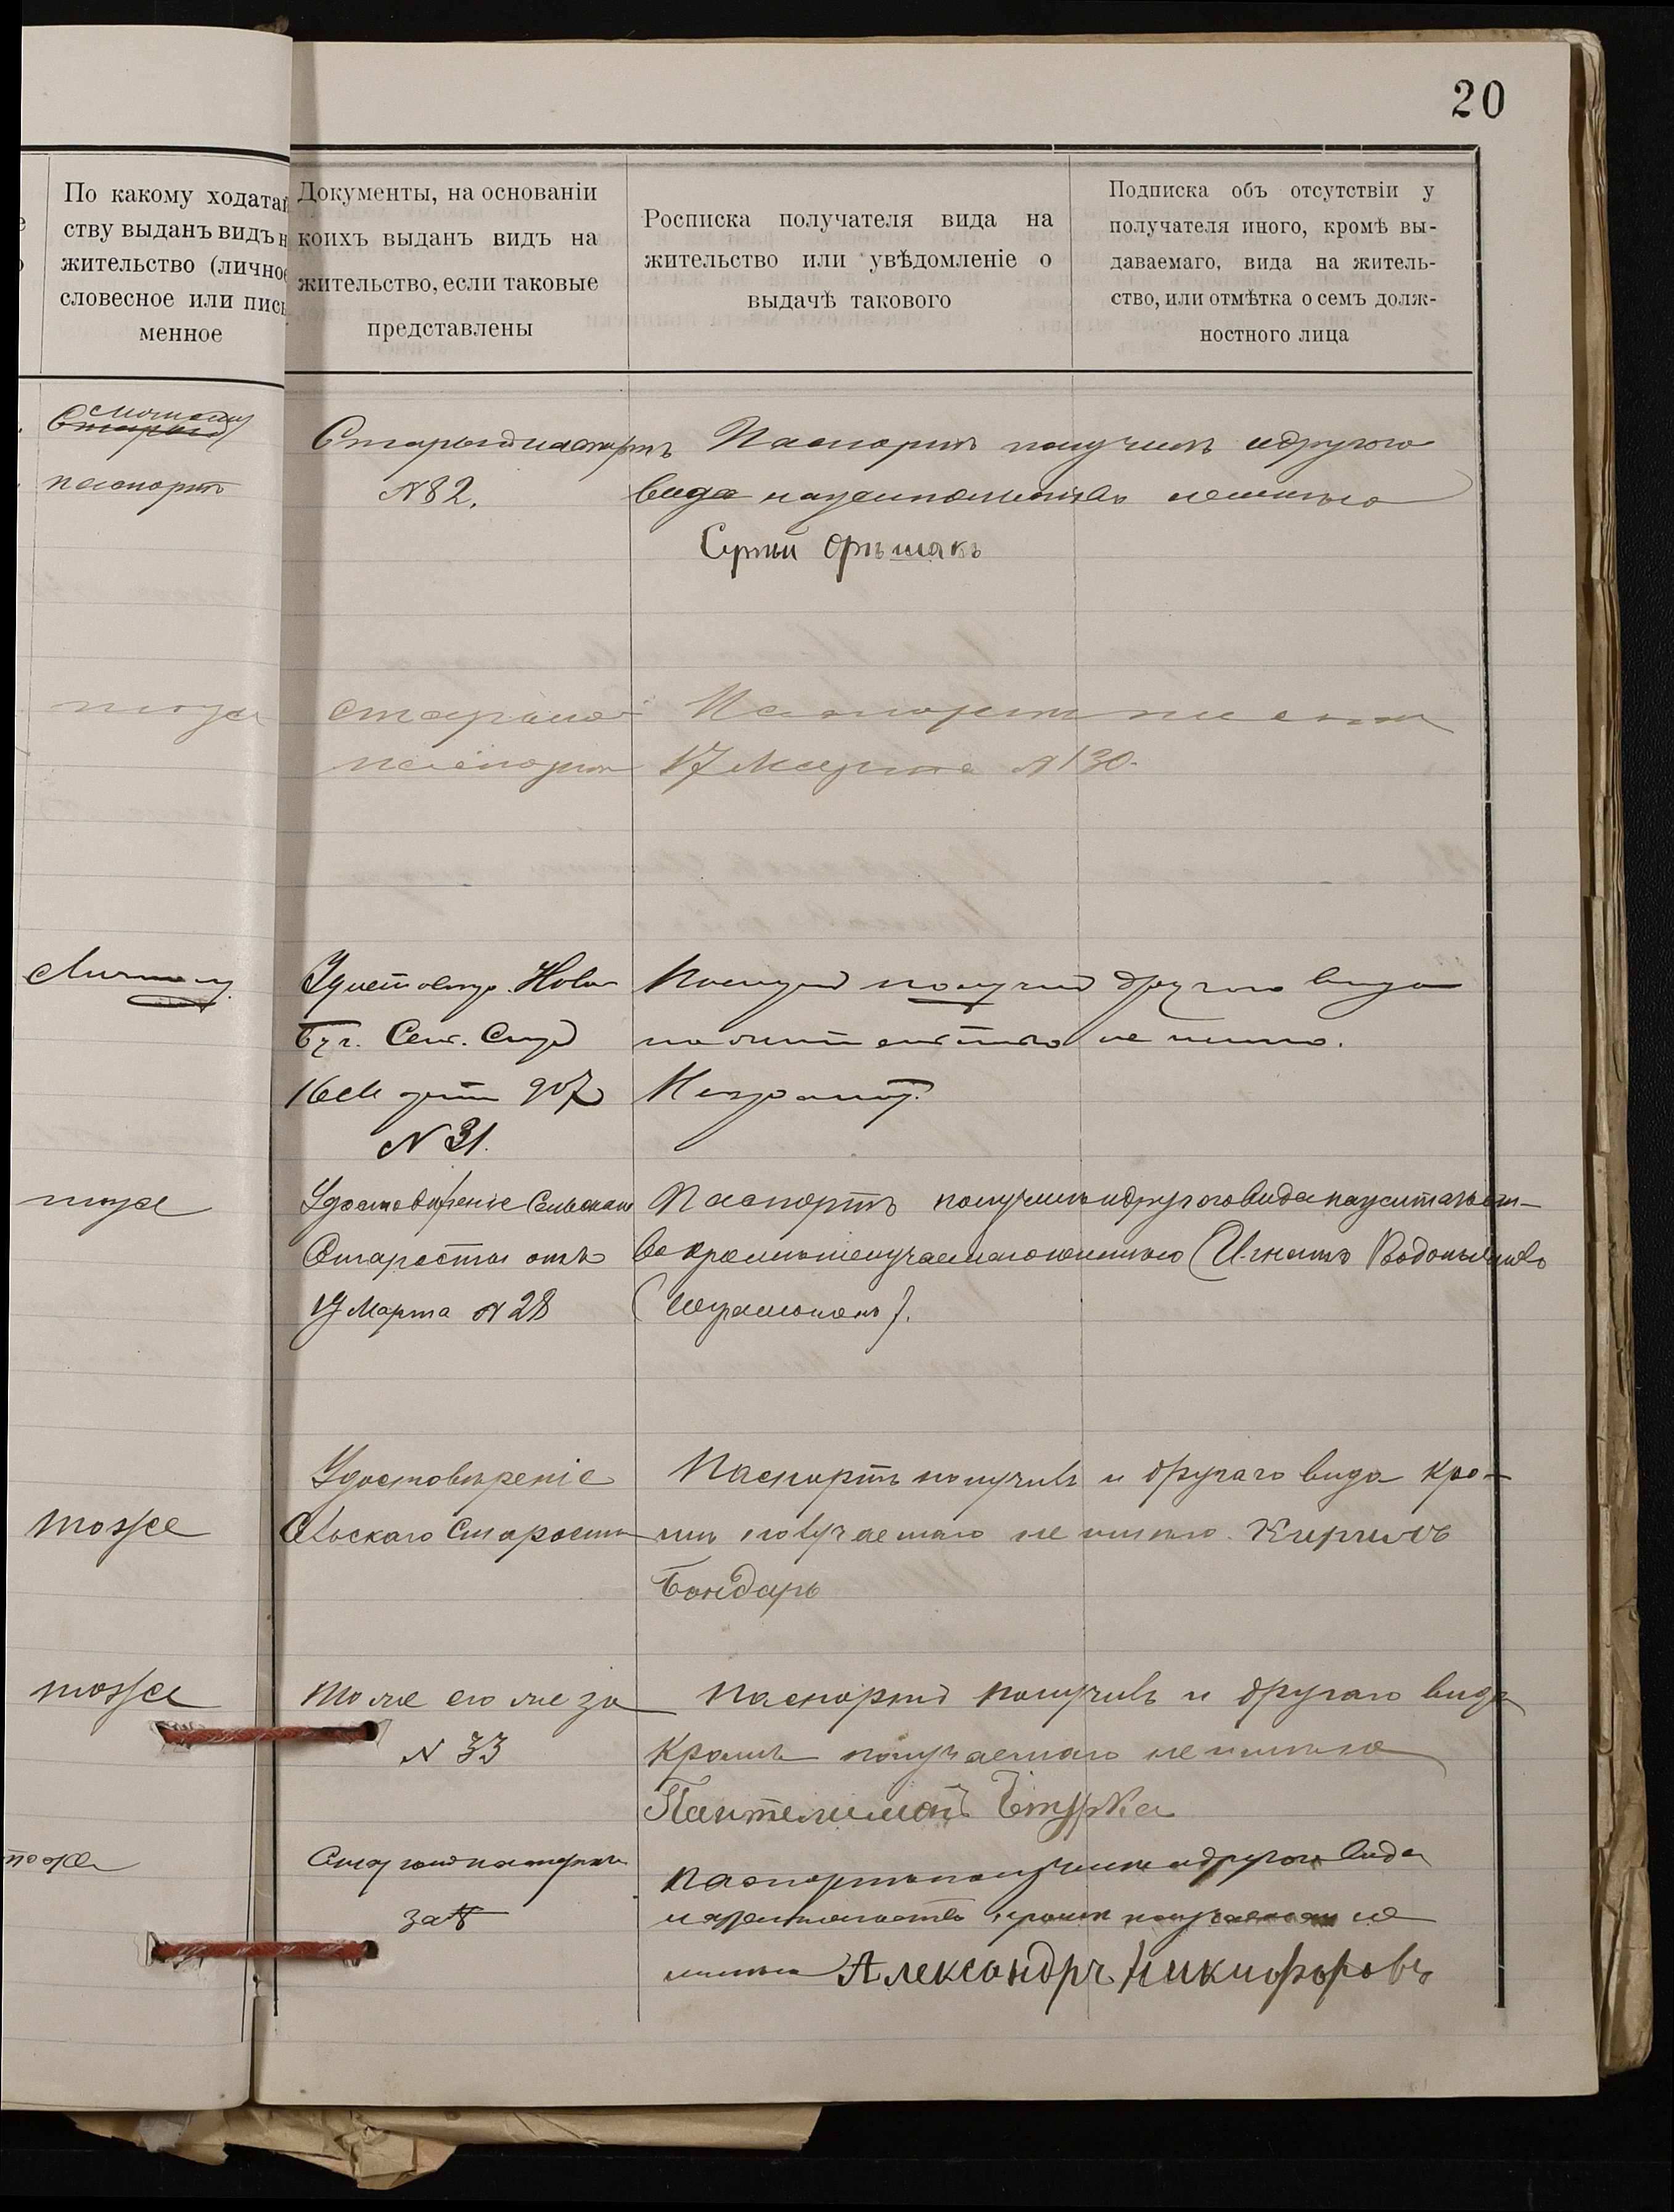 20
По какому ходатай
ству выданъ видъ н
жительство (личное
словесное или пись
менное
Документы, на основаніи
коихъ выданъ видъ на
жительство, если таковые
представлены
Росписка получателя вида на
жительство или увѣдомленіе о
выдачѣ такового
Подписка объ отсутствіи у
получателя иного, кромѣ вы-
даваемаго, вида на житель-
ство, или отмѣтка о семъ долж-
ностного лица
паспортъ
Старый паспортъ
N 82.
Паспортъ получилъ и другого
вида на жительство не имѣю
тоже
старый
паспортъ
Паспортъ
17 Марта N 130.
Личному
Удостовѣр. Ново
Буг. Сел. Стар
16 Марта 907
N 31.
Паспорт получил другого вида
на жительство не имѣю.
Неграмот.
тоже
Удостовѣреніе Сельскаго
Старосты отъ
17 Марта N 28
Паспортъ получилъ и другого вида на жительст-
во кромѣ получаемаго не имѣю (Игнатъ
(Неграмотенъ).
тоже
Удостовѣреніе
Сельскаго Старосты
Паспортъ получилъ и другаго вида кро-
мѣ получаемаго не имѣю. Кирилъ
Бондарь
тоже
То же его же за
N 33
Паспортъ получилъ и другаго вида
кромѣ получаемаго не имѣю
Пантелимонъ
тоже
Старый паспортъ
за N
Паспортъ получилъ и другого вида
на жительство кромѣ получаемаго не
имѣю Александръ Никифоровъ